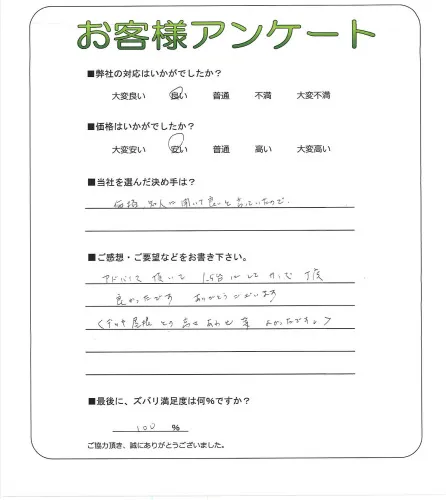 お客様アンケート
■弊社の対応はいかがでしたか?
大変良い 良い 普通 不満 大変不満
■価格はいかがでしたか?
大変安い 安い 普通 高い 大変高い
■当社を選んだ決め手は?
価格 知人に聞いて良いと言っていたので.
■ご感想・ご要望などをお書き下さい。
アドバイス 頂いて 1.5台にして
良かったです ありがとうございます
屋根 との 高さ あわせ よかったです
■最後に、ズバリ満足度は何%ですか?
100 %
ご協力頂き、誠にありがとうございました。